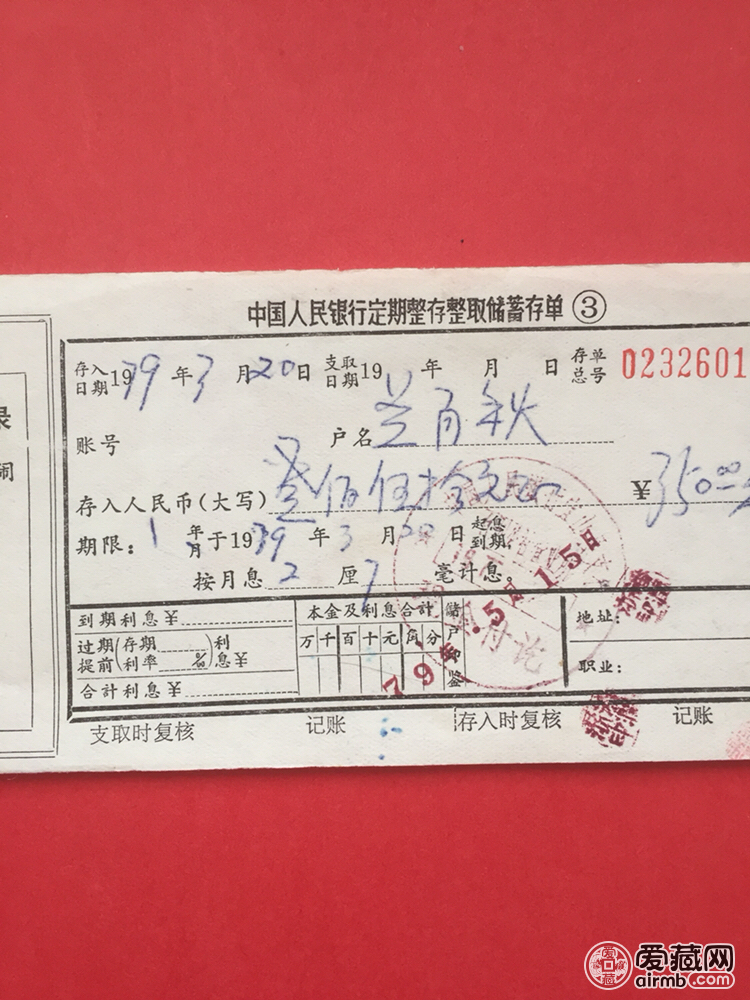 中国人民银行定期整存整取储蓄存单 ③
存入日期 1979年3月20日 支取日期 19 年 月 日 存单总号 0232601
账号 户名 兰百秋
存入人民币(大写) 叁佰伍拾元正 ¥350.00
期限: 1 年月 于1979年3月20日 起息到期.
按月息 2 厘 7 毫计息。
到期利息¥ 本金及利息合计 储户 鉴 地址:
过期提前 (存期 利率 %) 利息¥ 万千百十元角分
合计利息¥ 职业:
79年.5月15日
付讫
支取时复核 记账 存入时复核 记账
录
爱藏网
airmb.com